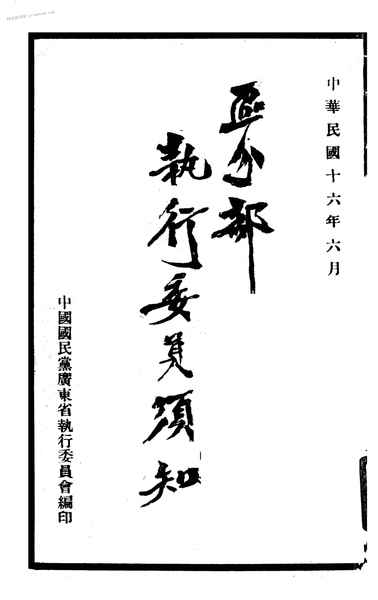 中華民國十六年六月
區分部
執行委員須知
中國國民黨廣東省執行委員會編印